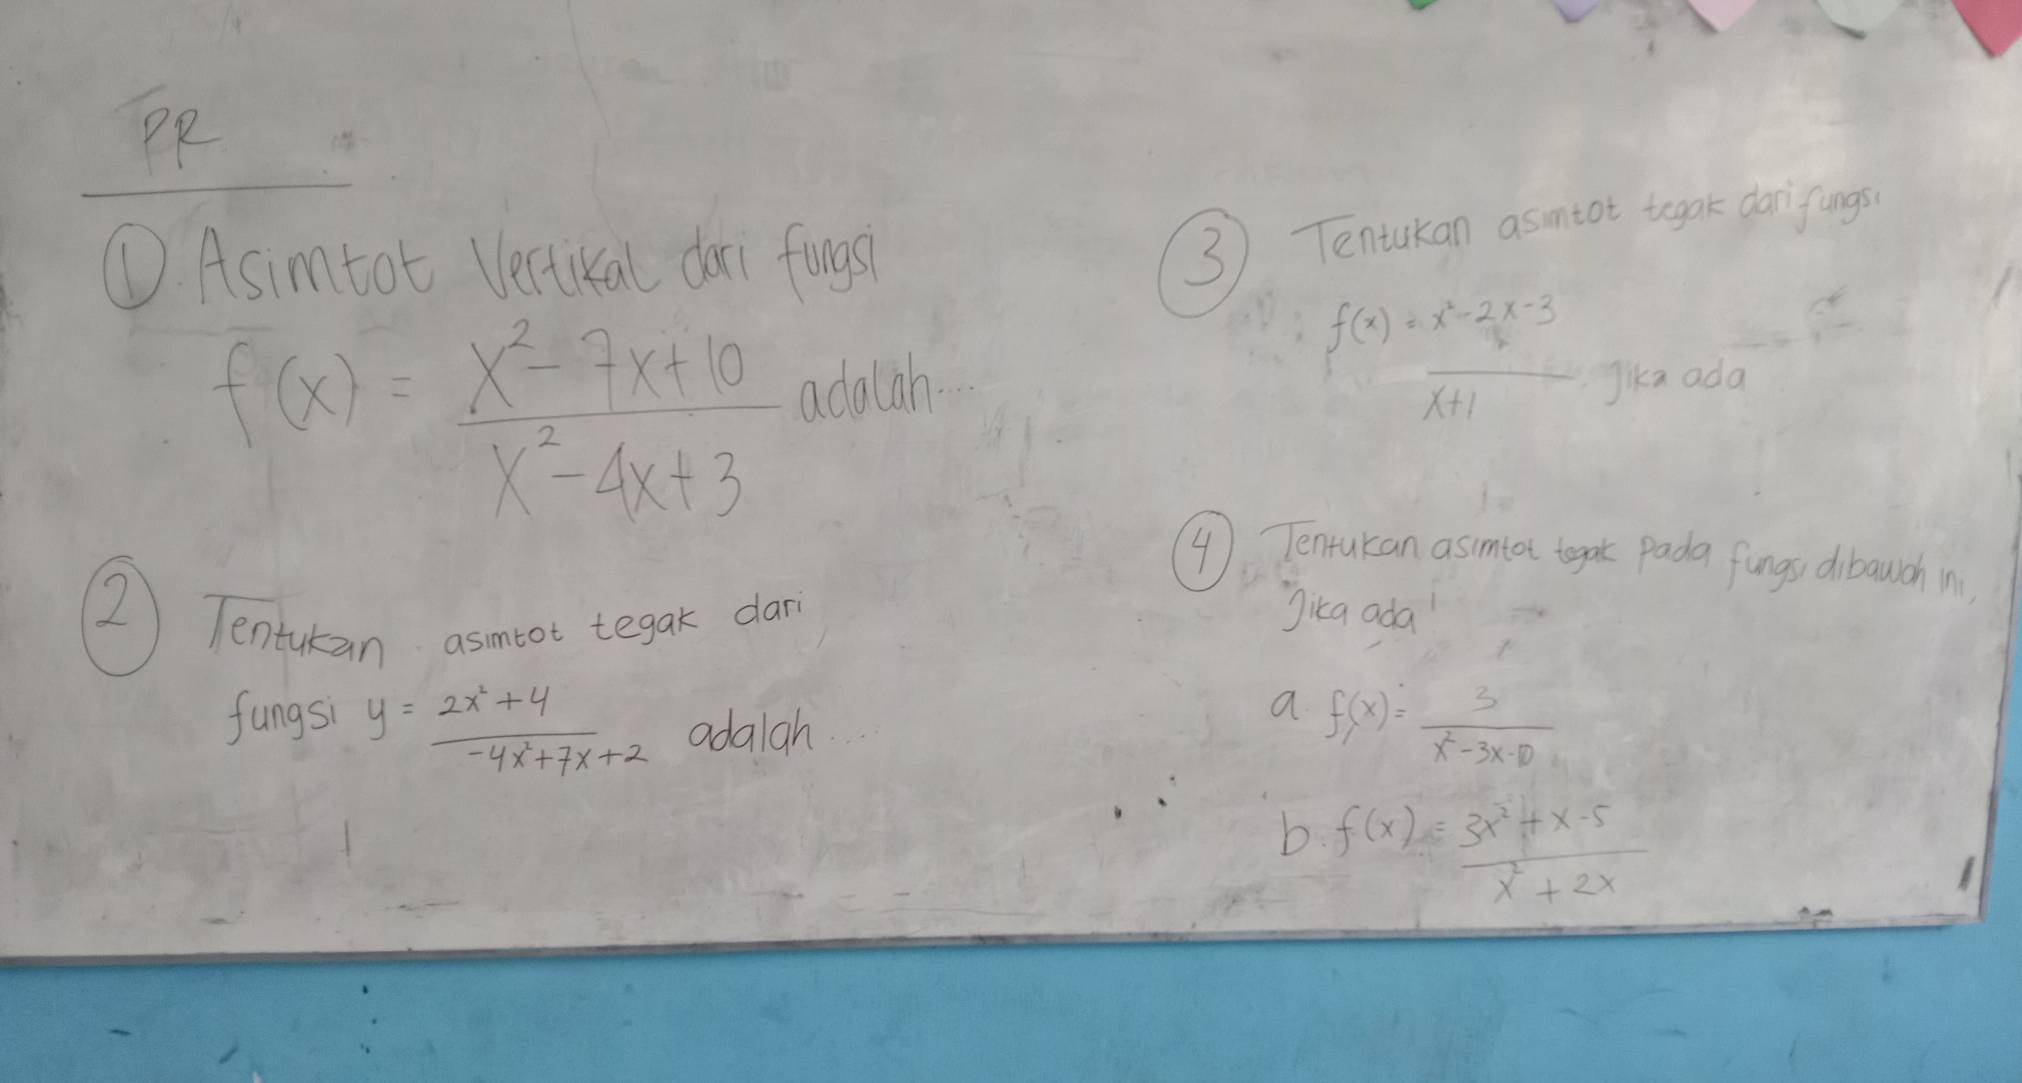 PR
① Asimtot Vertikal dari fungsi
f(x) = x² - 7x + 10 adalah...
x² - 4x + 3
② Tentukan asimtot tegak dari
fungsi y = 2x² + 4 adalah....
-4x² + 7x + 2
③ Tentukan asimtot tegak dari fungsi
f(x) = x² - 2x - 3
x+1 Jika ada
④ Tentukan asimtot tegak pada fungsi dibawah ini,
Jika ada!
a. f(x) = 3
x² - 3x - 10
b. f(x) = 3x² + x - 5
x² + 2x